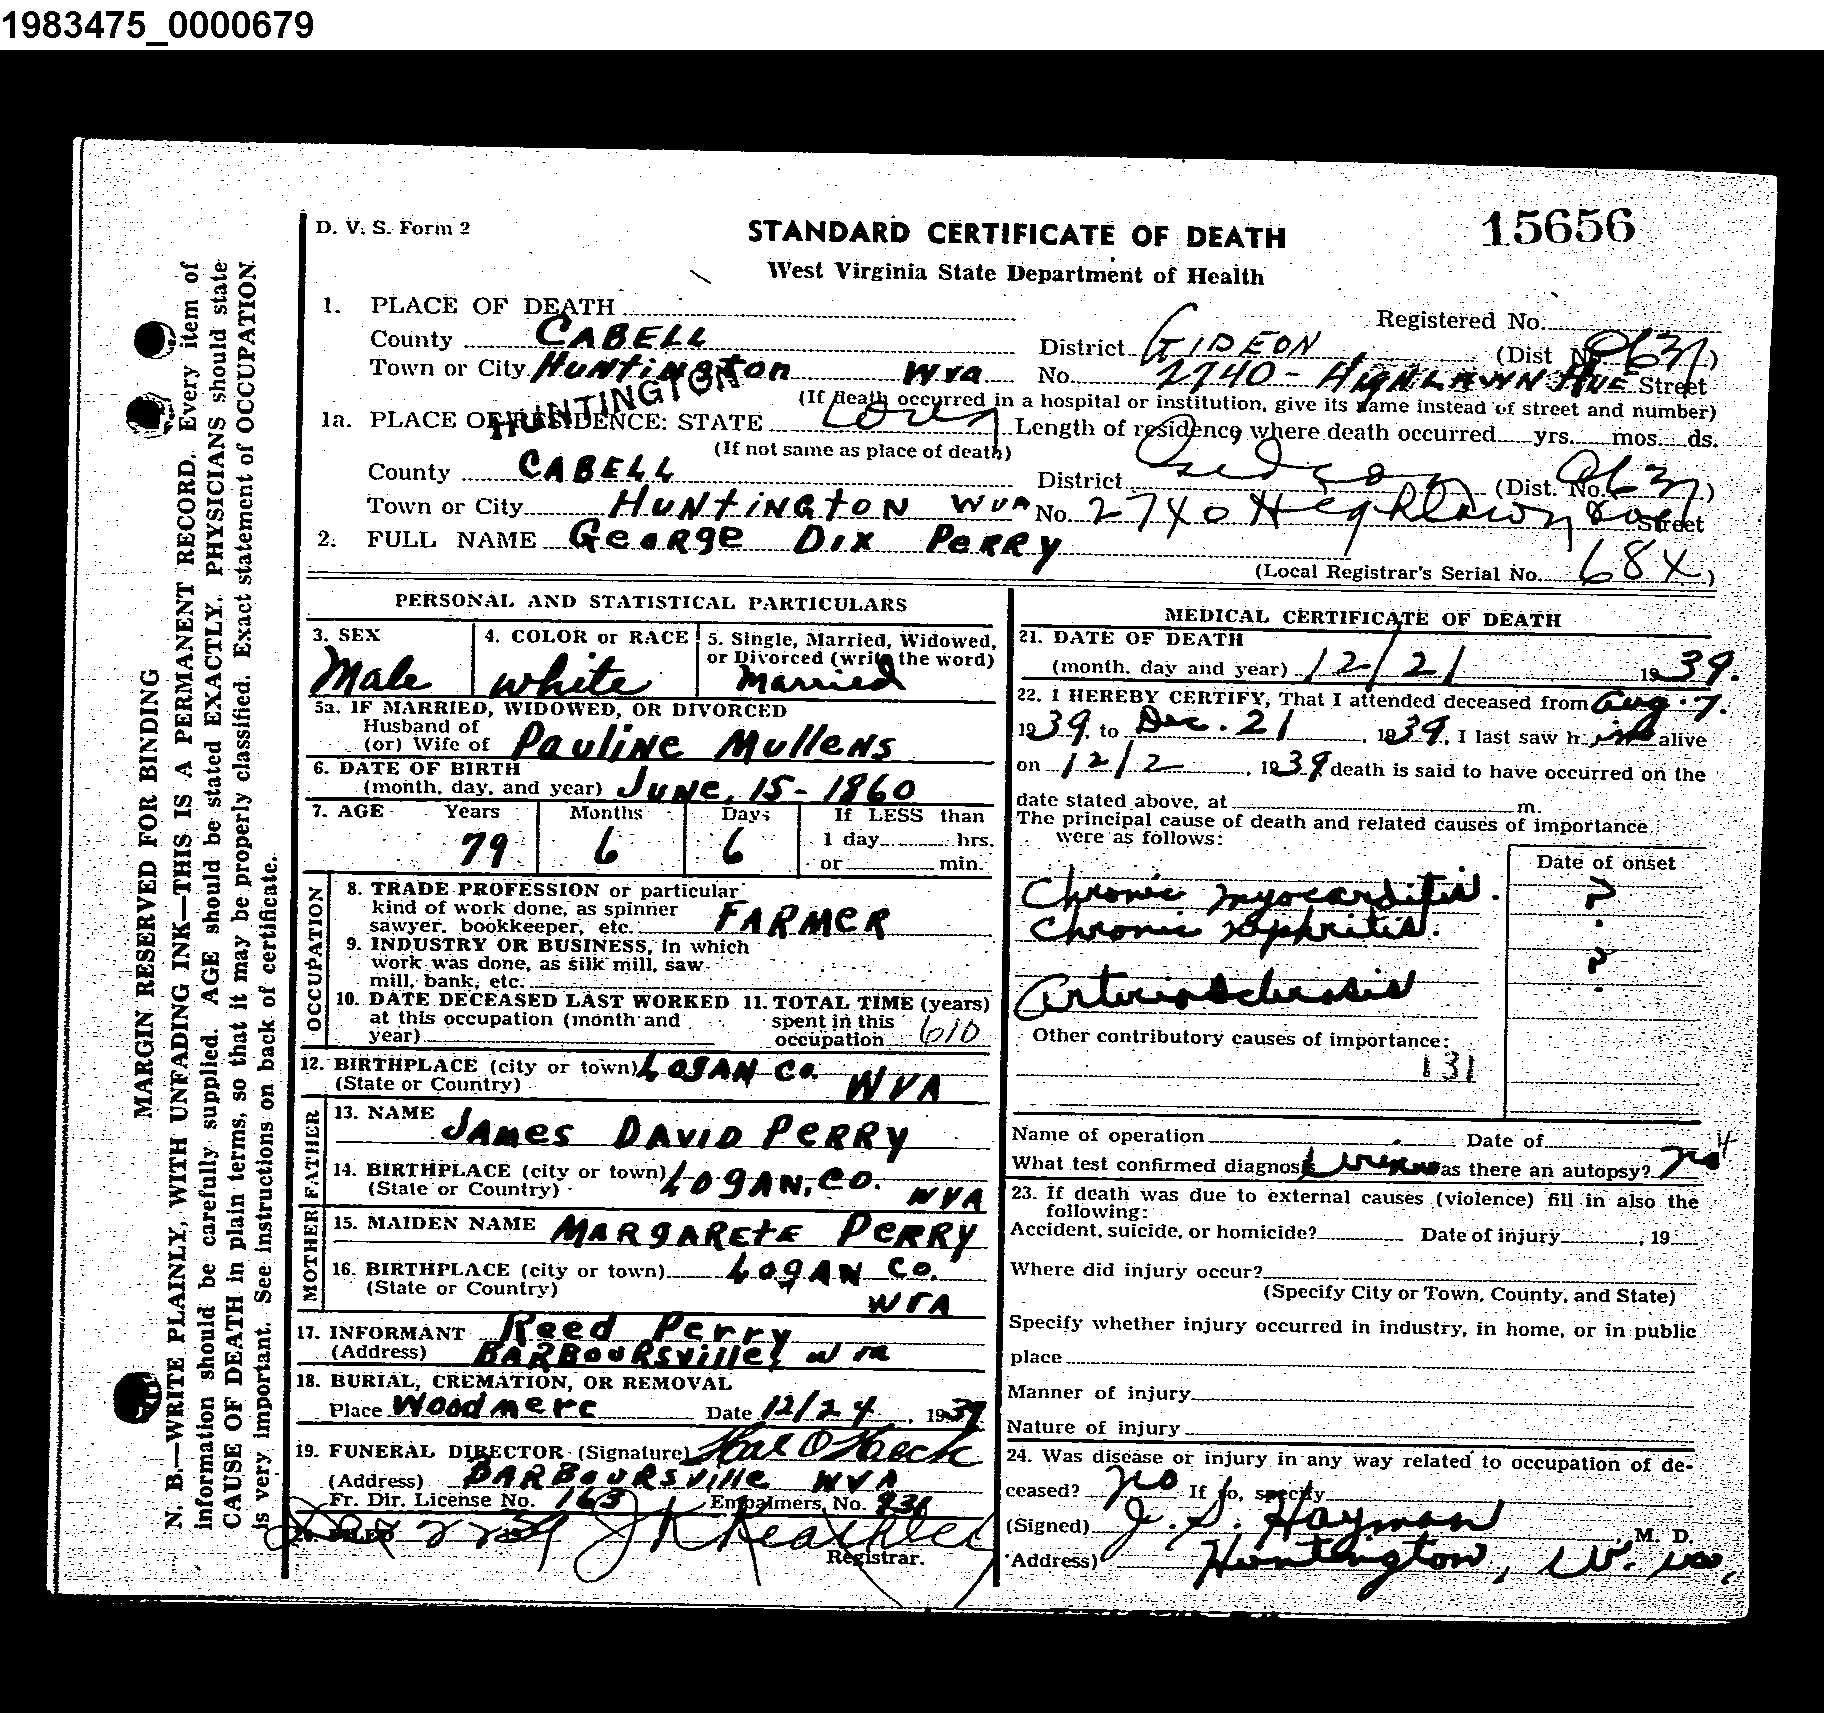 1983475_0000679
D. V. S. Form 2
STANDARD CERTIFICATE OF DEATH
15656
West Virginia State Department of Health
MARGIN RESERVED FOR BINDING
N. B.—WRITE PLAINLY, WITH UNFADING INK—THIS IS A PERMANENT RECORD. Every item of
information should be carefully supplied. AGE should be stated EXACTLY. PHYSICIANS should state
CAUSE OF DEATH in plain terms, so that it may be properly classified. Exact statement of OCCUPATION
is very important. See instructions on back of certificate.
1. PLACE OF DEATH
Registered No.
County CABELL District GIDEON (Dist No. 0637)
Town or City HUNTINGTON WVA No. 2740 - HIGHLAWN AVE Street
HUNTINGTON
(If death occurred in a hospital or institution, give its name instead of street and number)
1a. PLACE OF RESIDENCE: STATE Length of residence where death occurred yrs. mos. ds.
(If not same as place of death)
County CABELL District Gideon (Dist. No. 0637)
Town or City HUNTINGTON WVA No. 2740 Highlawn Ave Street
2. FULL NAME GEORGE DIX PERRY
(Local Registrar's Serial No. 684)
PERSONAL AND STATISTICAL PARTICULARS
3. SEX
Male
4. COLOR or RACE
White
5. Single, Married, Widowed,
or Divorced (write the word)
Married
5a. IF MARRIED, WIDOWED, OR DIVORCED
Husband of
(or) Wife of PAULINE MULLENS
6. DATE OF BIRTH
(month, day, and year) JUNE, 15 - 1860
7. AGE Years Months Days If LESS than
1 day hrs.
79 6 6 or min.
OCCUPATION
8. TRADE PROFESSION or particular
kind of work done, as spinner
sawyer, bookkeeper, etc. FARMER
9. INDUSTRY OR BUSINESS, in which
work was done, as silk mill, saw
mill, bank, etc.
10. DATE DECEASED LAST WORKED
at this occupation (month and
year)
11. TOTAL TIME (years)
spent in this
occupation 610
12. BIRTHPLACE (city or town) LOGAN CO.
(State or Country) WVA
FATHER
13. NAME JAMES DAVID PERRY
14. BIRTHPLACE (city or town) LOGAN, CO.
(State or Country) WVA
MOTHER
15. MAIDEN NAME MARGARETE PERRY
16. BIRTHPLACE (city or town) LOGAN CO.
(State or Country) WVA
17. INFORMANT Reed Perry
(Address) BARBOURSVILLE, WVA
18. BURIAL, CREMATION, OR REMOVAL
Place Woodmere Date 12/24, 1939
19. FUNERAL DIRECTOR (Signature)
(Address) BARBOURSVILLE WVA
Fr. Dir. License No. 163 Embalmers No.
20. FILED
Registrar.
MEDICAL CERTIFICATE OF DEATH
21. DATE OF DEATH
(month, day and year) 12/21 1939.
22. I HEREBY CERTIFY, That I attended deceased from Aug. 7.
1939, to Dec. 21, 1939, I last saw him alive
on 12/2, 1939 death is said to have occurred on the
date stated above, at m.
The principal cause of death and related causes of importance
were as follows:
Date of onset
Chronic myocarditis. ?
Chronic nephritis.
?
Arteriosclerosis
Other contributory causes of importance:
131
Name of operation Date of
What test confirmed diagnosis Urine Was there an autopsy? no
4
23. If death was due to external causes (violence) fill in also the
following:
Accident, suicide, or homicide? Date of injury , 19
Where did injury occur?
(Specify City or Town, County, and State)
Specify whether injury occurred in industry, in home, or in public
place
Manner of injury
Nature of injury
24. Was disease or injury in any way related to occupation of de-
ceased? no If so, specify
(Signed) J. S. Hayman M. D.
(Address) Huntington, W. Va,